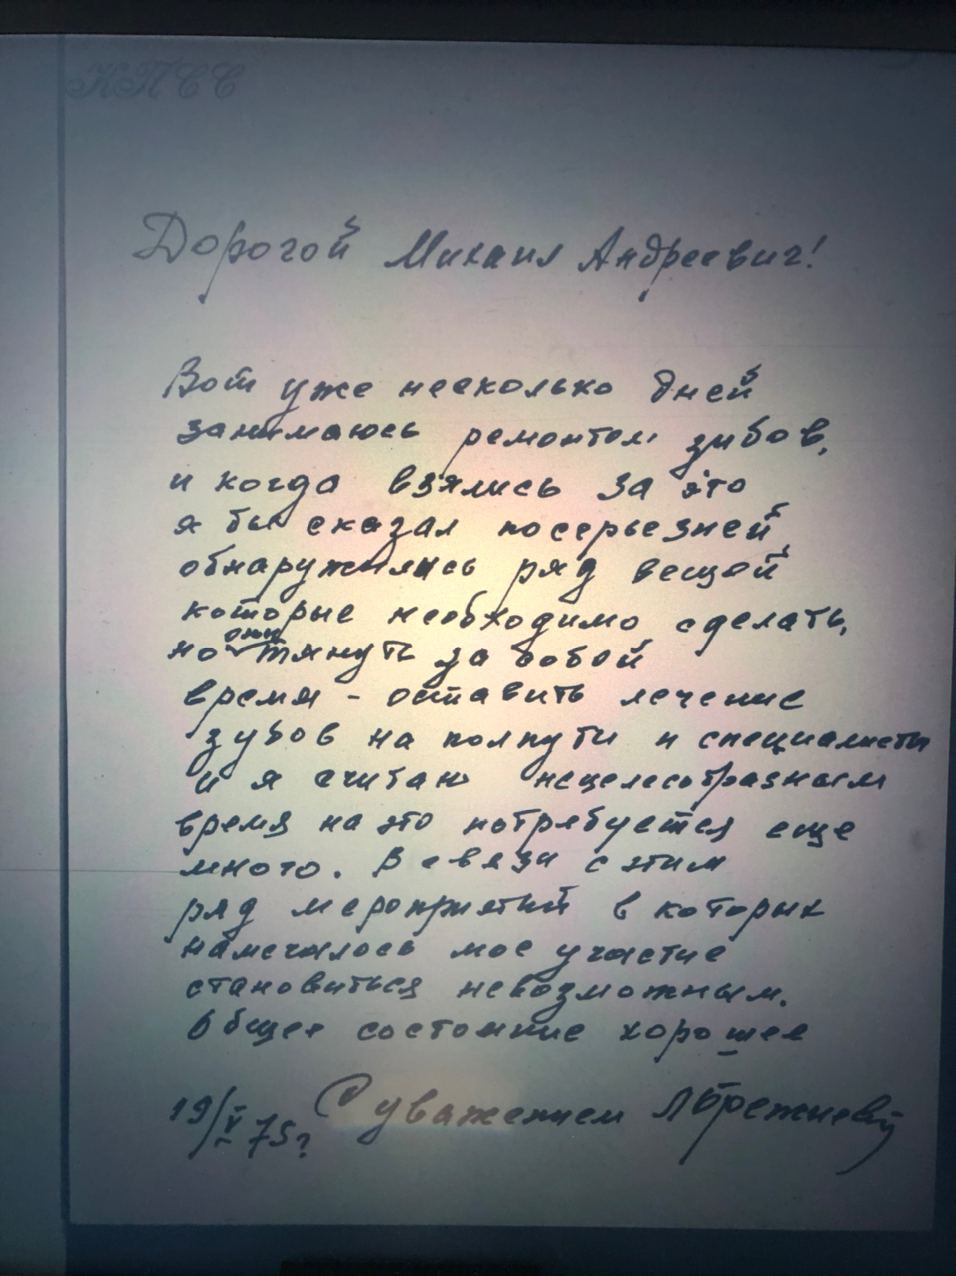 КПСС
Дорогой Михаил Андреевич!
Вот уже несколько дней
занимаюсь ремонтом зубов,
и когда взялись за это
я бы сказал посерьезней
обнаружилось ряд вещей
которые необходимо сделать,
но они тянуть за собой
время - оставить лечение
зубов на полпути и специалисты
и я считаю нецелесобразным
время на это потребуется еще
много. В связи с этим
ряд мероприятий в которых
намечалось мое участие
становиться невозможным.
Общее состояние хорошее
19/V 75г С уважением ЛБрежнев